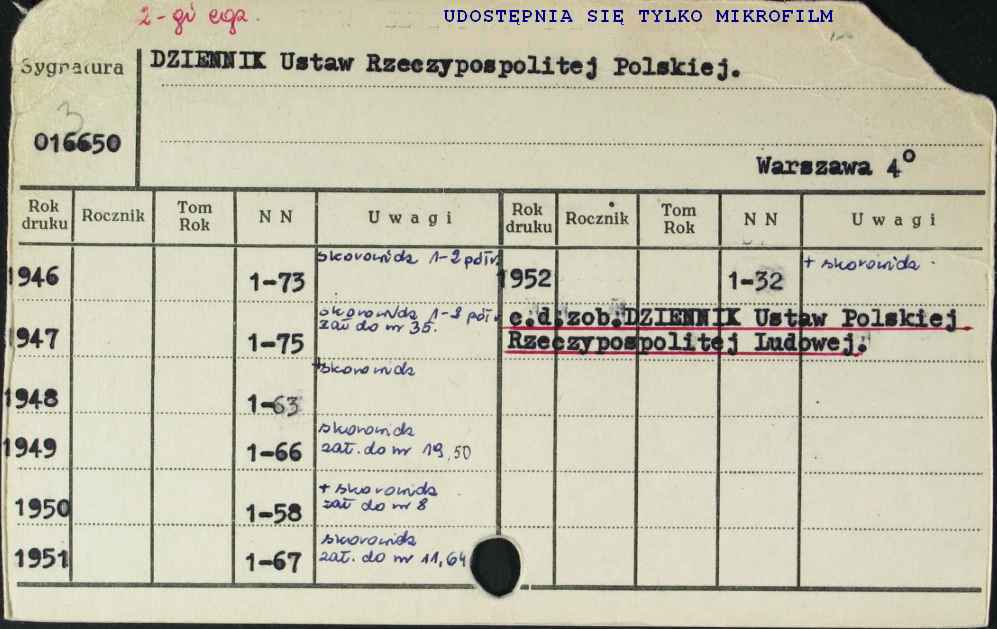 2-gi egz.
UDOSTĘPNIA SIĘ TYLKO MIKROFILM
Sygnatura
DZIENNIK Ustaw Rzeczypospolitej Polskiej.
3
016650
Warszawa 4°
Rok druku Rocznik Tom Rok N N Uwagi Rok druku Rocznik Tom Rok N N Uwagi
1946 1-73 skorowidz 1-2 półr.
1947 1-75 skorowidz 1-2 półr.
zał do nr 35.
1948 1-63 + skorowidz
1949 1-66 skorowidz
zał. do nr 19, 50
1950 1-58 + skorowidz
zał do nr 8
1951 1-67 skorowidz
zał. do nr 11, 64
1952 1-32 + skorowidz
c.d.zob.DZIENNIK Ustaw Polskiej
Rzeczypospolitej Ludowej.